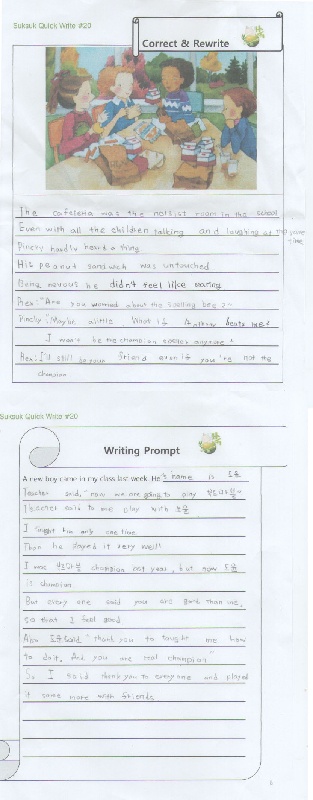 Suksuk Quick Write #20
Correct & Rewrite
The cafeteria was the noisist room in the school
Even with all the children talking and laughing at the same time
Pinchy hardly heard a thing
His peanut sandwich was untouched
Being nervous he didn't feel like eating
"Are you worried about the spelling bee?"
Pinchy: "Maybe a little. What if beats me?
I won't be the champion speller anymore"
I'll still be your friend even if you're not the
champion
Suksuk Quick Write #20
Writing Prompt
A new boy came in my class last week. He's name is 도윤
Teacher said, "now we are going to play
Teacher said to me play with 도윤
I taught him only one time.
Then he played it very well!
I was champion last year, but now 도윤
is champion
But every one said you are good than me.
so that I feel good
Also 도윤 said "thank you to taught me how
to do it. And you are real champion"
So I said thank you to everyone and played
it some more with friends
6